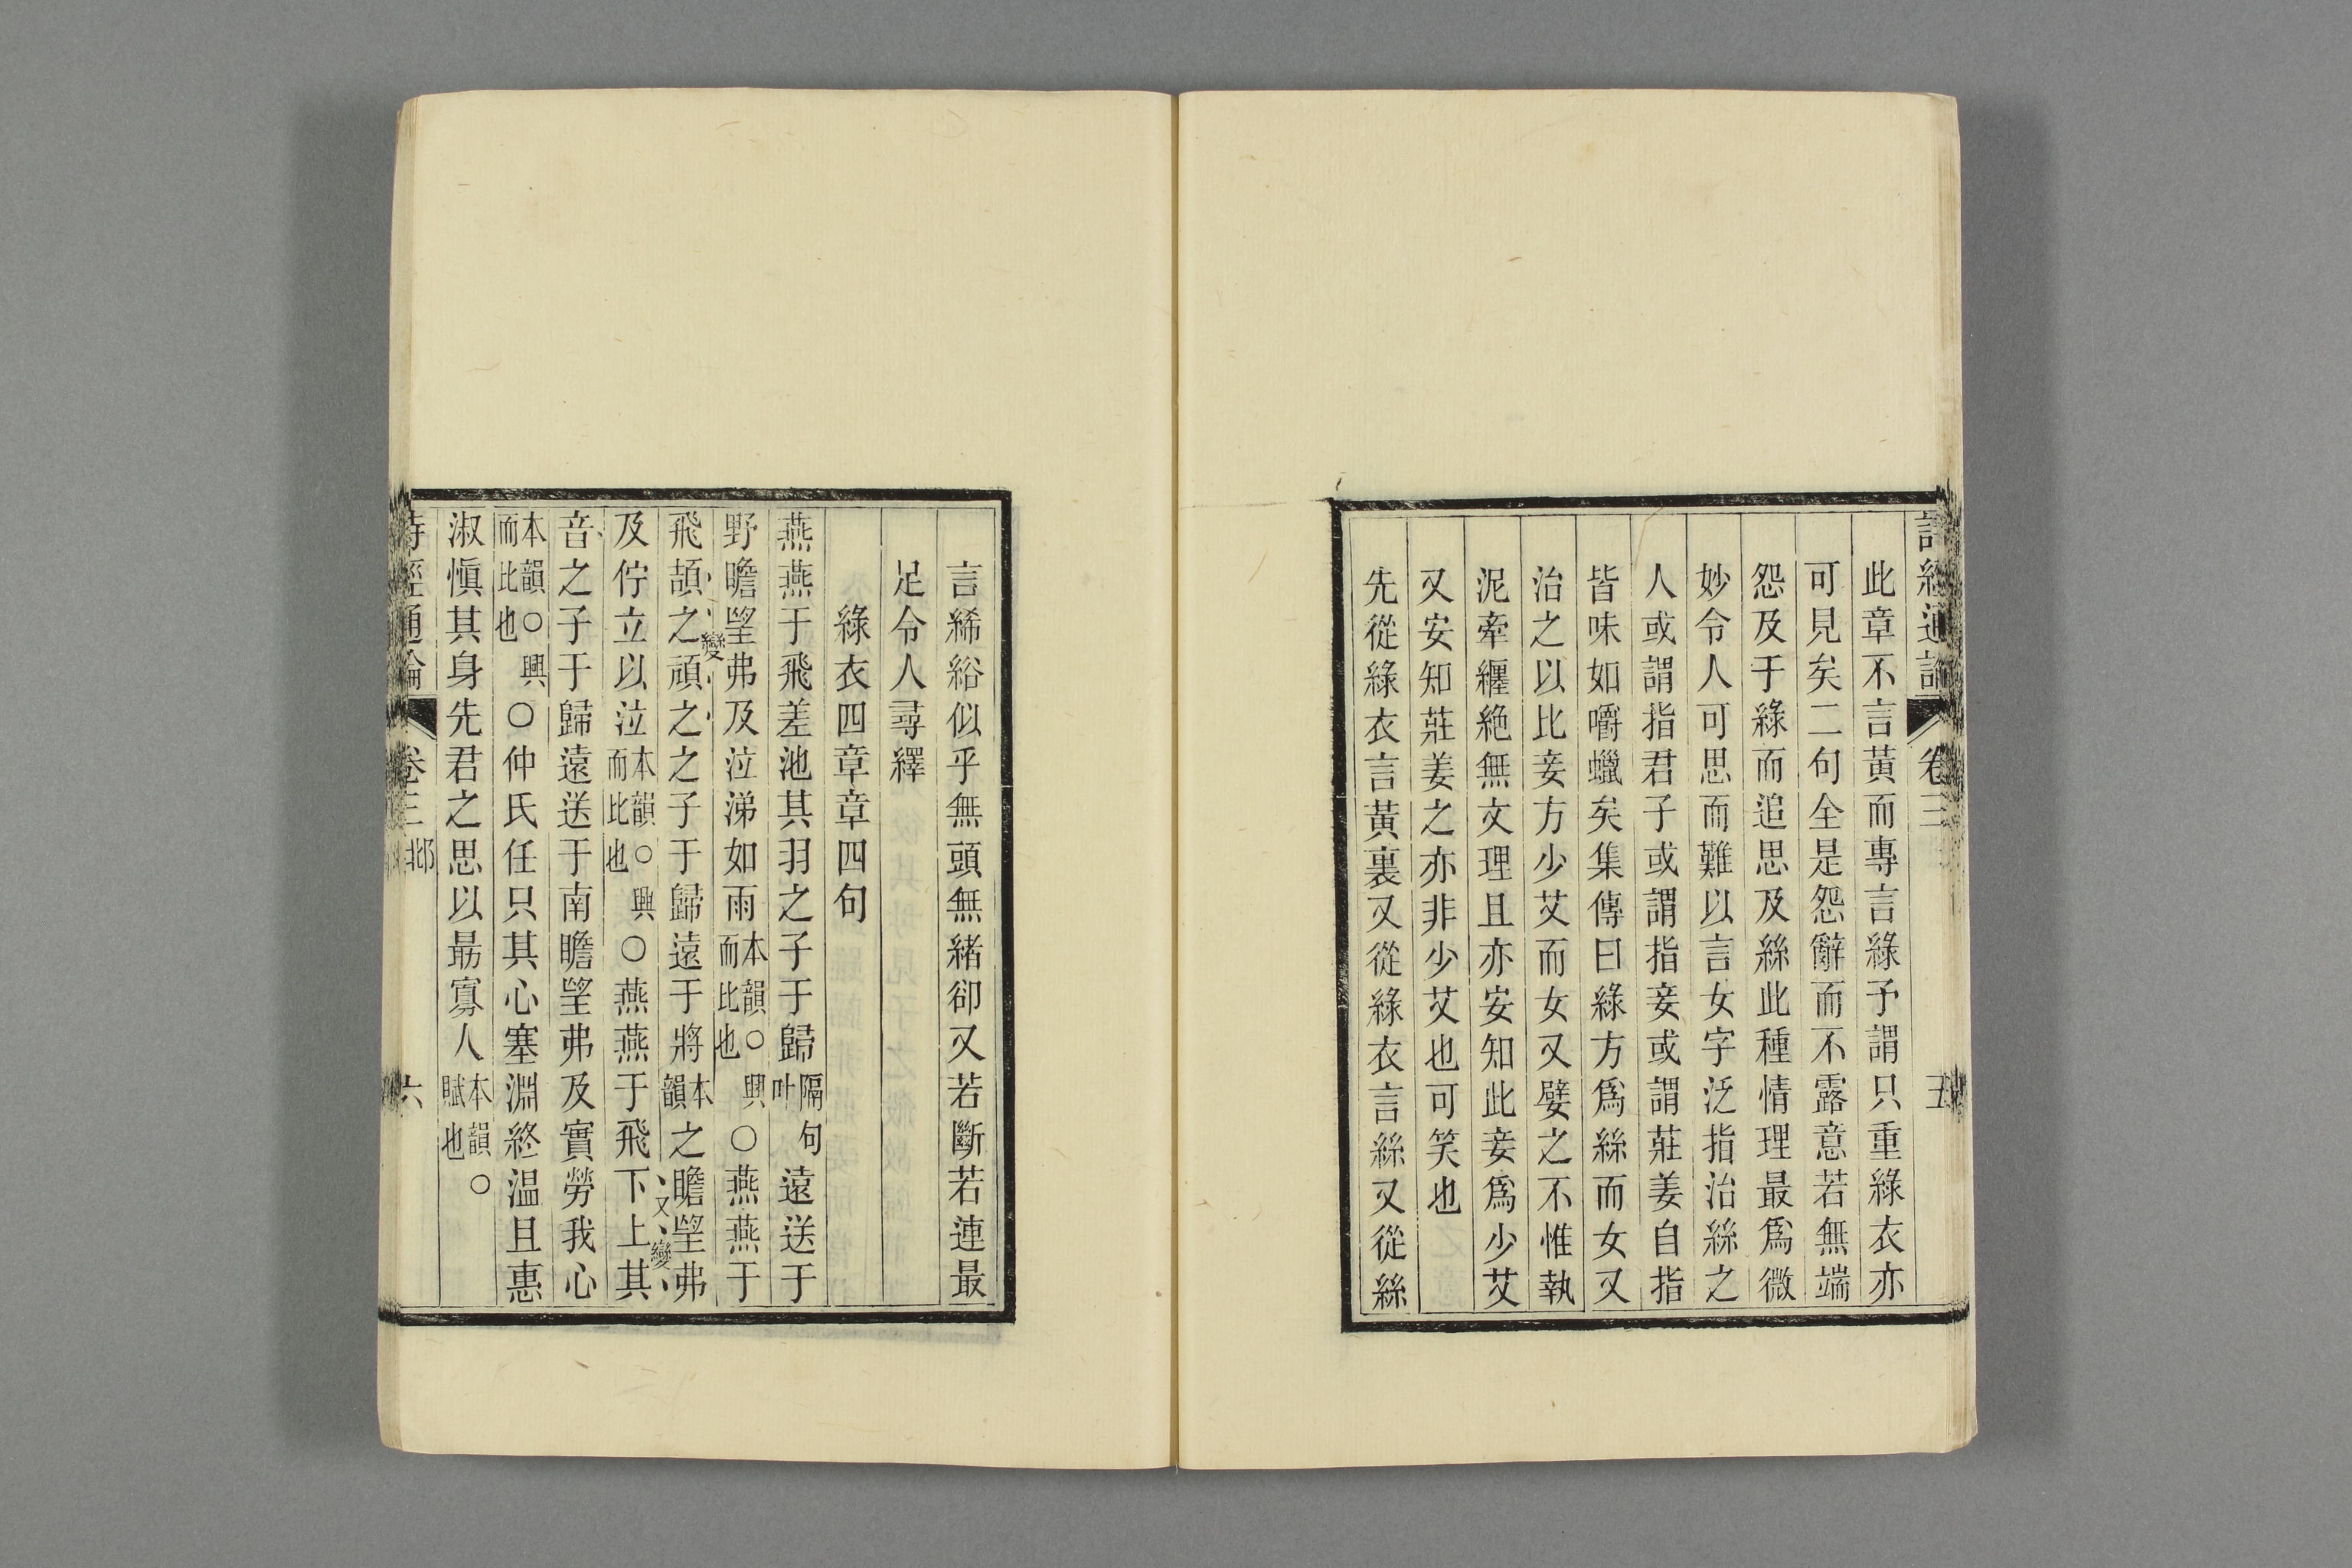 詩經通論 卷三 五
此章不言黃而專言綠予謂只重綠衣亦
可見矣二句全是怨辭而不露意若無端
怨及于綠而追思及絲此種情理最爲微
妙令人可思而難以言女字泛指治絲之
人或謂指君子或謂指妾或謂莊姜自指
皆味如嚼蠟矣集傳曰綠方爲絲而女又
治之以比妾方少艾而女又嬖之不惟執
泥牽纏絶無文理且亦安知此妾爲少艾
又安知莊姜之亦非少艾也可笑也
先從綠衣言黃裏又從綠衣言絲又從絲
言絺綌似乎無頭無緒卻又若斷若連最
足令人尋繹
綠衣四章章四句
燕燕于飛差池其羽之子于歸隔句叶遠送于
野瞻望弗及泣涕如雨本韻○興而比也○燕燕于
飛頡之頏之之子于歸遠于將本韻之瞻望弗
變
及佇立以泣本韻○興而比也○燕燕于飛下上其
又變
音之子于歸遠送于南瞻望弗及實勞我心
本韻○興而比也○仲氏任只其心塞淵終温且惠
淑慎其身先君之思以勗寡人本韻○賦也
詩經通論 卷三 邶 六